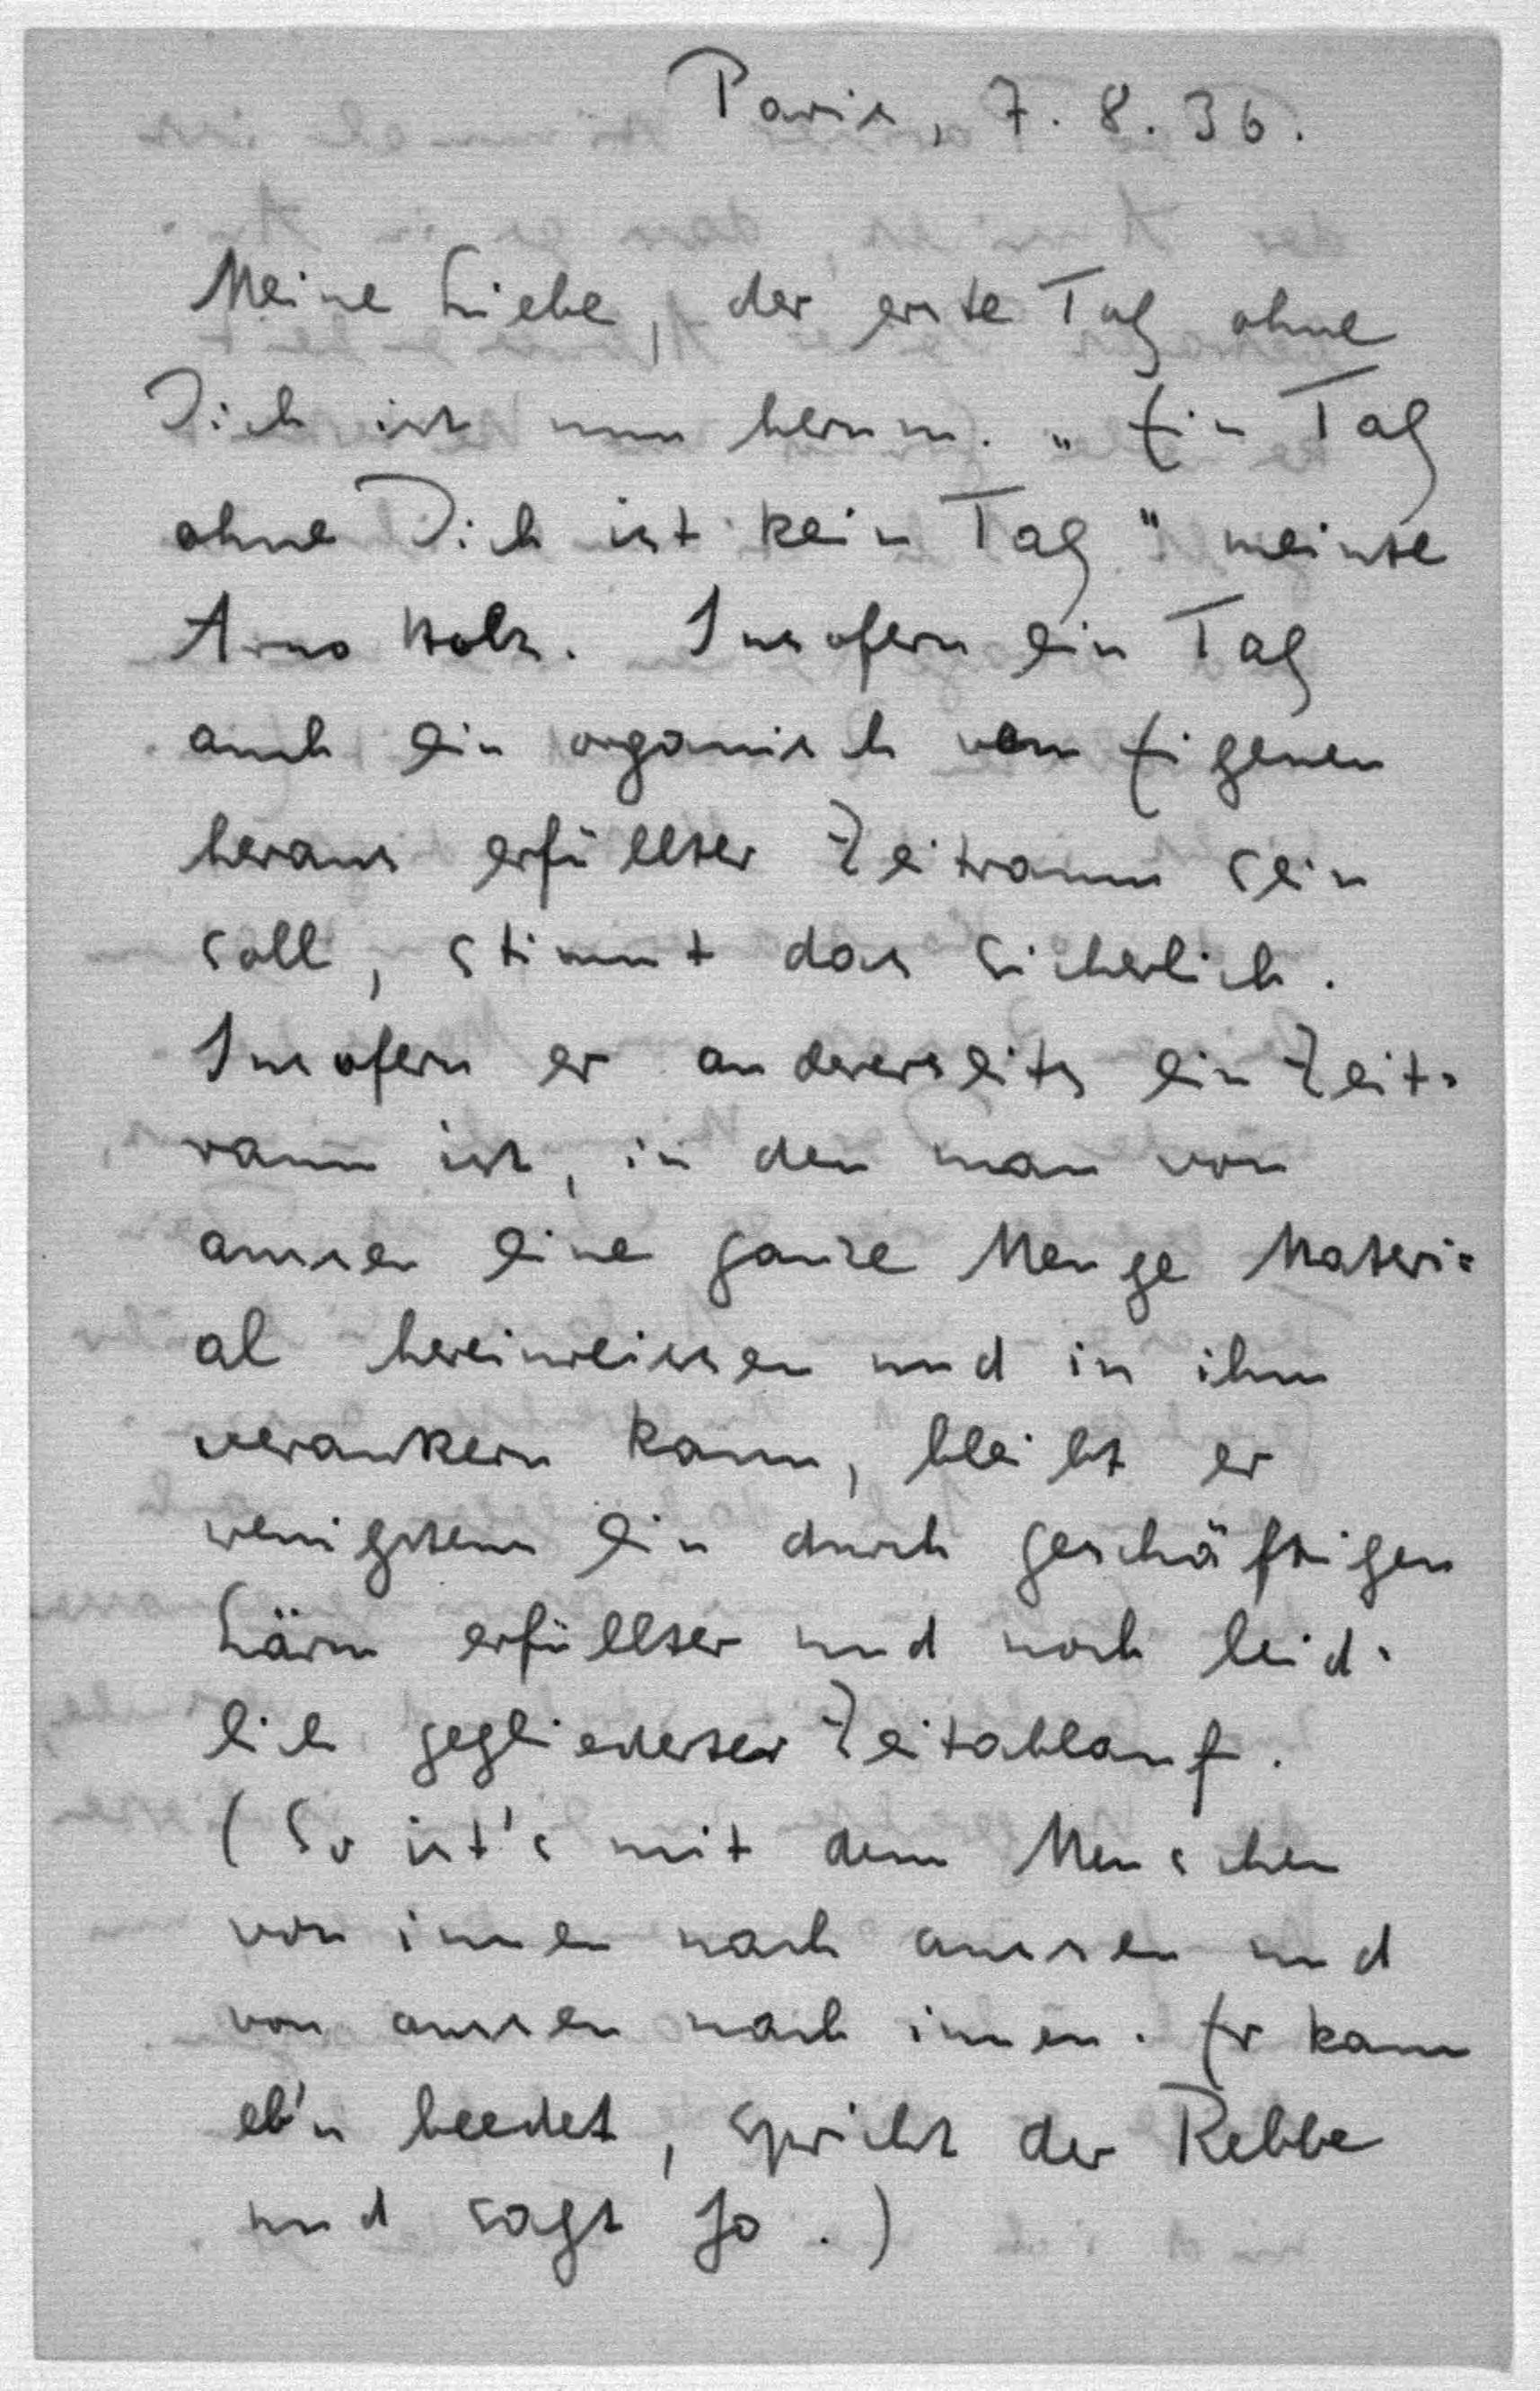 Paris, 7. 8. 36.
Meine Liebe, der erste Tag ohne
Dich ist nun herum. „Ein Tag
ohne Dich ist kein Tag" meinte
Arno Holz. Insofern ein Tag
auch ein organisch vom Eigenen
heraus erfüllter Zeitraum sein
soll, stimmt das sicherlich.
Insofern er andererseits ein Zeit-
raum ist, in den man von
aussen eine ganze Menge Materi=
al hereinreissen und in ihm
verankern kann, bleibt er
wenigstens ein durch geschäftigen
Lärm erfüllter und noch leid-
lich gegliederter Zeitablauf.
(So ist's mit dem Menschen
von innen nach aussen und
von aussen nach innen. Er kann
eb'n beedet, spricht der Rebbe
und sagt Jo.)